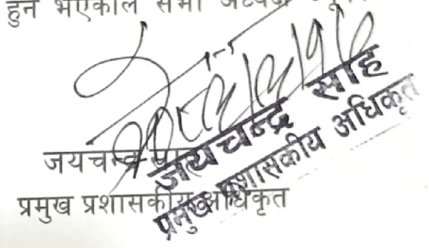 हुने भएकोले सबै
जयचन्द्र
प्रमुख प्रशासकीय अधिकृत
जयचन्द्र साह
प्रमुख प्रशासकीय अधिकृत